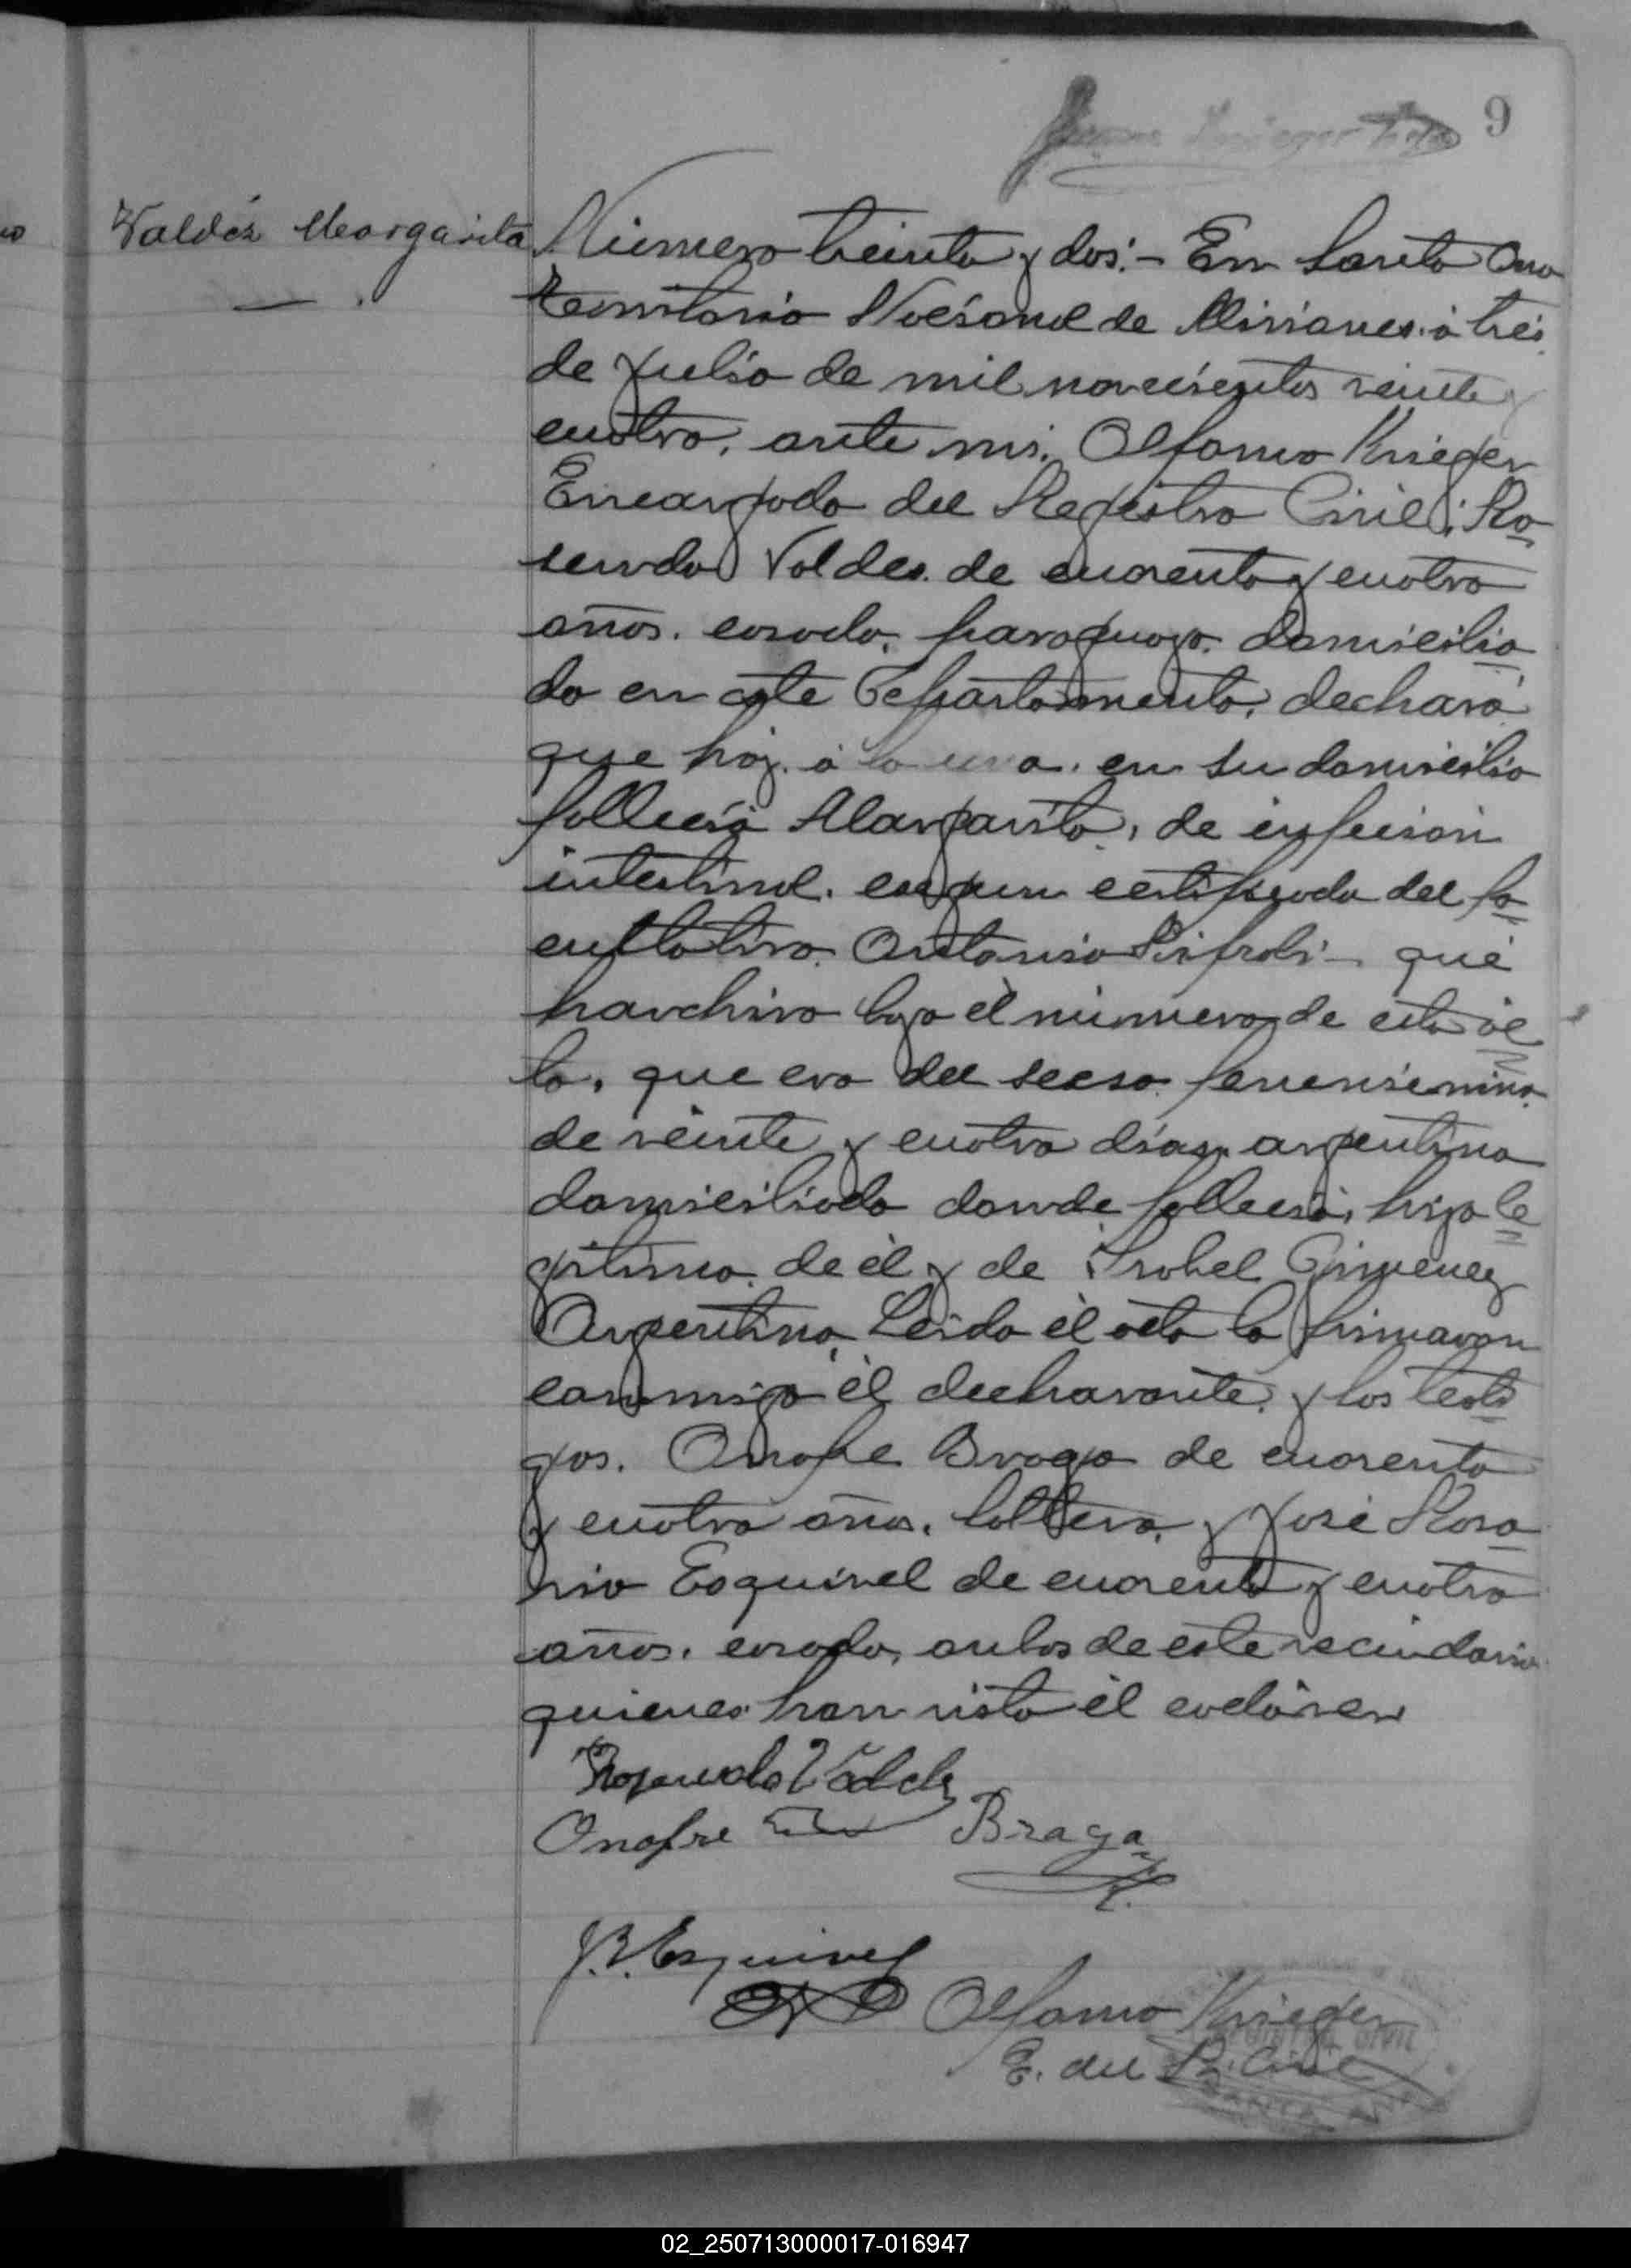 9
Valdéz Margarita
Número treinta y dos:- En Santa Ana
Territorio Nacional de Misiones. á tres
de Julio de mil novecientos veinte y
cuatro, ante mi. Olfanio Krieger
Encargado del Registro Civil; Ro
sendo Valdes. de cuarenta y cuatro
años. casado, paraguayo. domicilia
do en este Departamento, declaró
que hoy. á la una. en su domicilio
falleció Margarita, de infecion
intestinal. segun certificado del fa
cultativo. Antonio que
harchivo bajo él número de esta ac
ta, que era del secso femenino.
de veinte y cuatro días argentina
domiciliada donde falleció, hija le
gitima de él y de Isabel Gimenez
Argentina, Leida él acta la firmaron
conmigo él declarante. y los testi
gos. Onofre Braga de cuarenta
y cuatro años. soltero, y José Rosa
rio Esquivel de cuarenta y cuatro
años. casado, anbos de este vecindario
quienes han visto él cadáver
Rosendo Valdez
Onofre Braga
J. R. Esquivel
Olfanio Krieger
E. del R. Civil
SANTA ANA
02_250713000017-016947